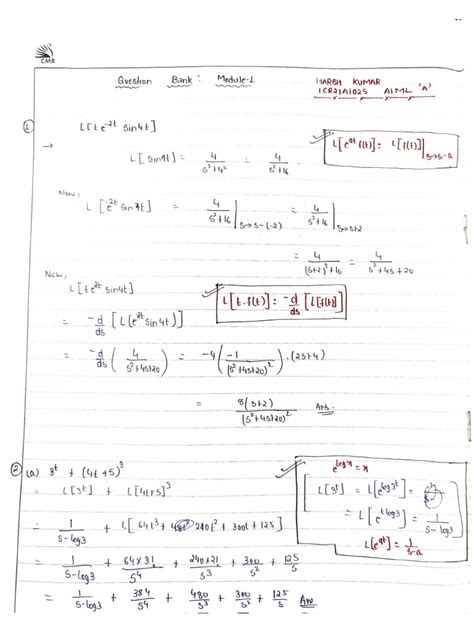 CMR
Question Bank : Module-1
HARSH KUMAR
1CR21AI025 AIML 'A'
① L[t e^-2t sin4t]
→ L[sin4t] = 4/(s²+4²) = 4/(s²+16)
L[e^at f(t)] = L[f(t)]|s→s-a
Now,
= 4/(s²+16)|s→s-(-2) = 4/(s²+16)|s→s+2
= 4/((s+2)²+16) = 4/(s²+4s+20)
Now,
L[t e^-2t sin4t]
L[t.f(t)] = -d/ds [L[f(t)]]
= -d/ds [L(e^-2t sin4t)]
= -d/ds (4/(s²+4s+20)) = -4(-1/(s²+4s+20)²).(2s+4)
= 8(s+2)/(s²+4s+20)² Ans.
② (a) 3^t + (4t+5)³
e^logx = x
= L[3^t] + L[4t+5]³
L[3^t] = L[e^log3^t] =
= L[e^tlog3] = 1/(s-log3)
L[e^at] = 1/(s-a)
= 1/(s-log3) + L[64t³ + 240t² + 300t + 125]
= 1/(s-log3) + 64×3!/s⁴ + 240×2!/s³ + 300/s² + 125/s
= 1/(s-log3) + 384/s⁴ + 480/s³ + 300/s² + 125/s Ans